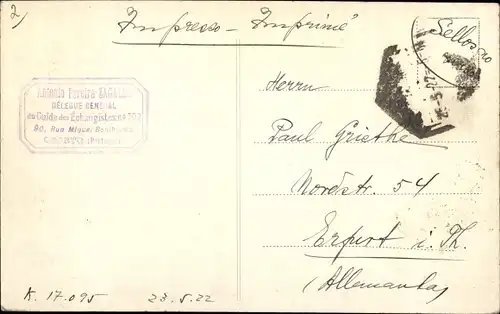 2)
Impresso - Imprimé
Sellos no
Antonio Pereira
DÉLEGUÉ GÉNÉRAL
du Guide des Échangistes nº 702
90, Rua Miguel
Herrn
Paul Griethe
Nordstr. 54
Erfurt i. Th.
(Allemanha)
K. 17.095 23.5.22